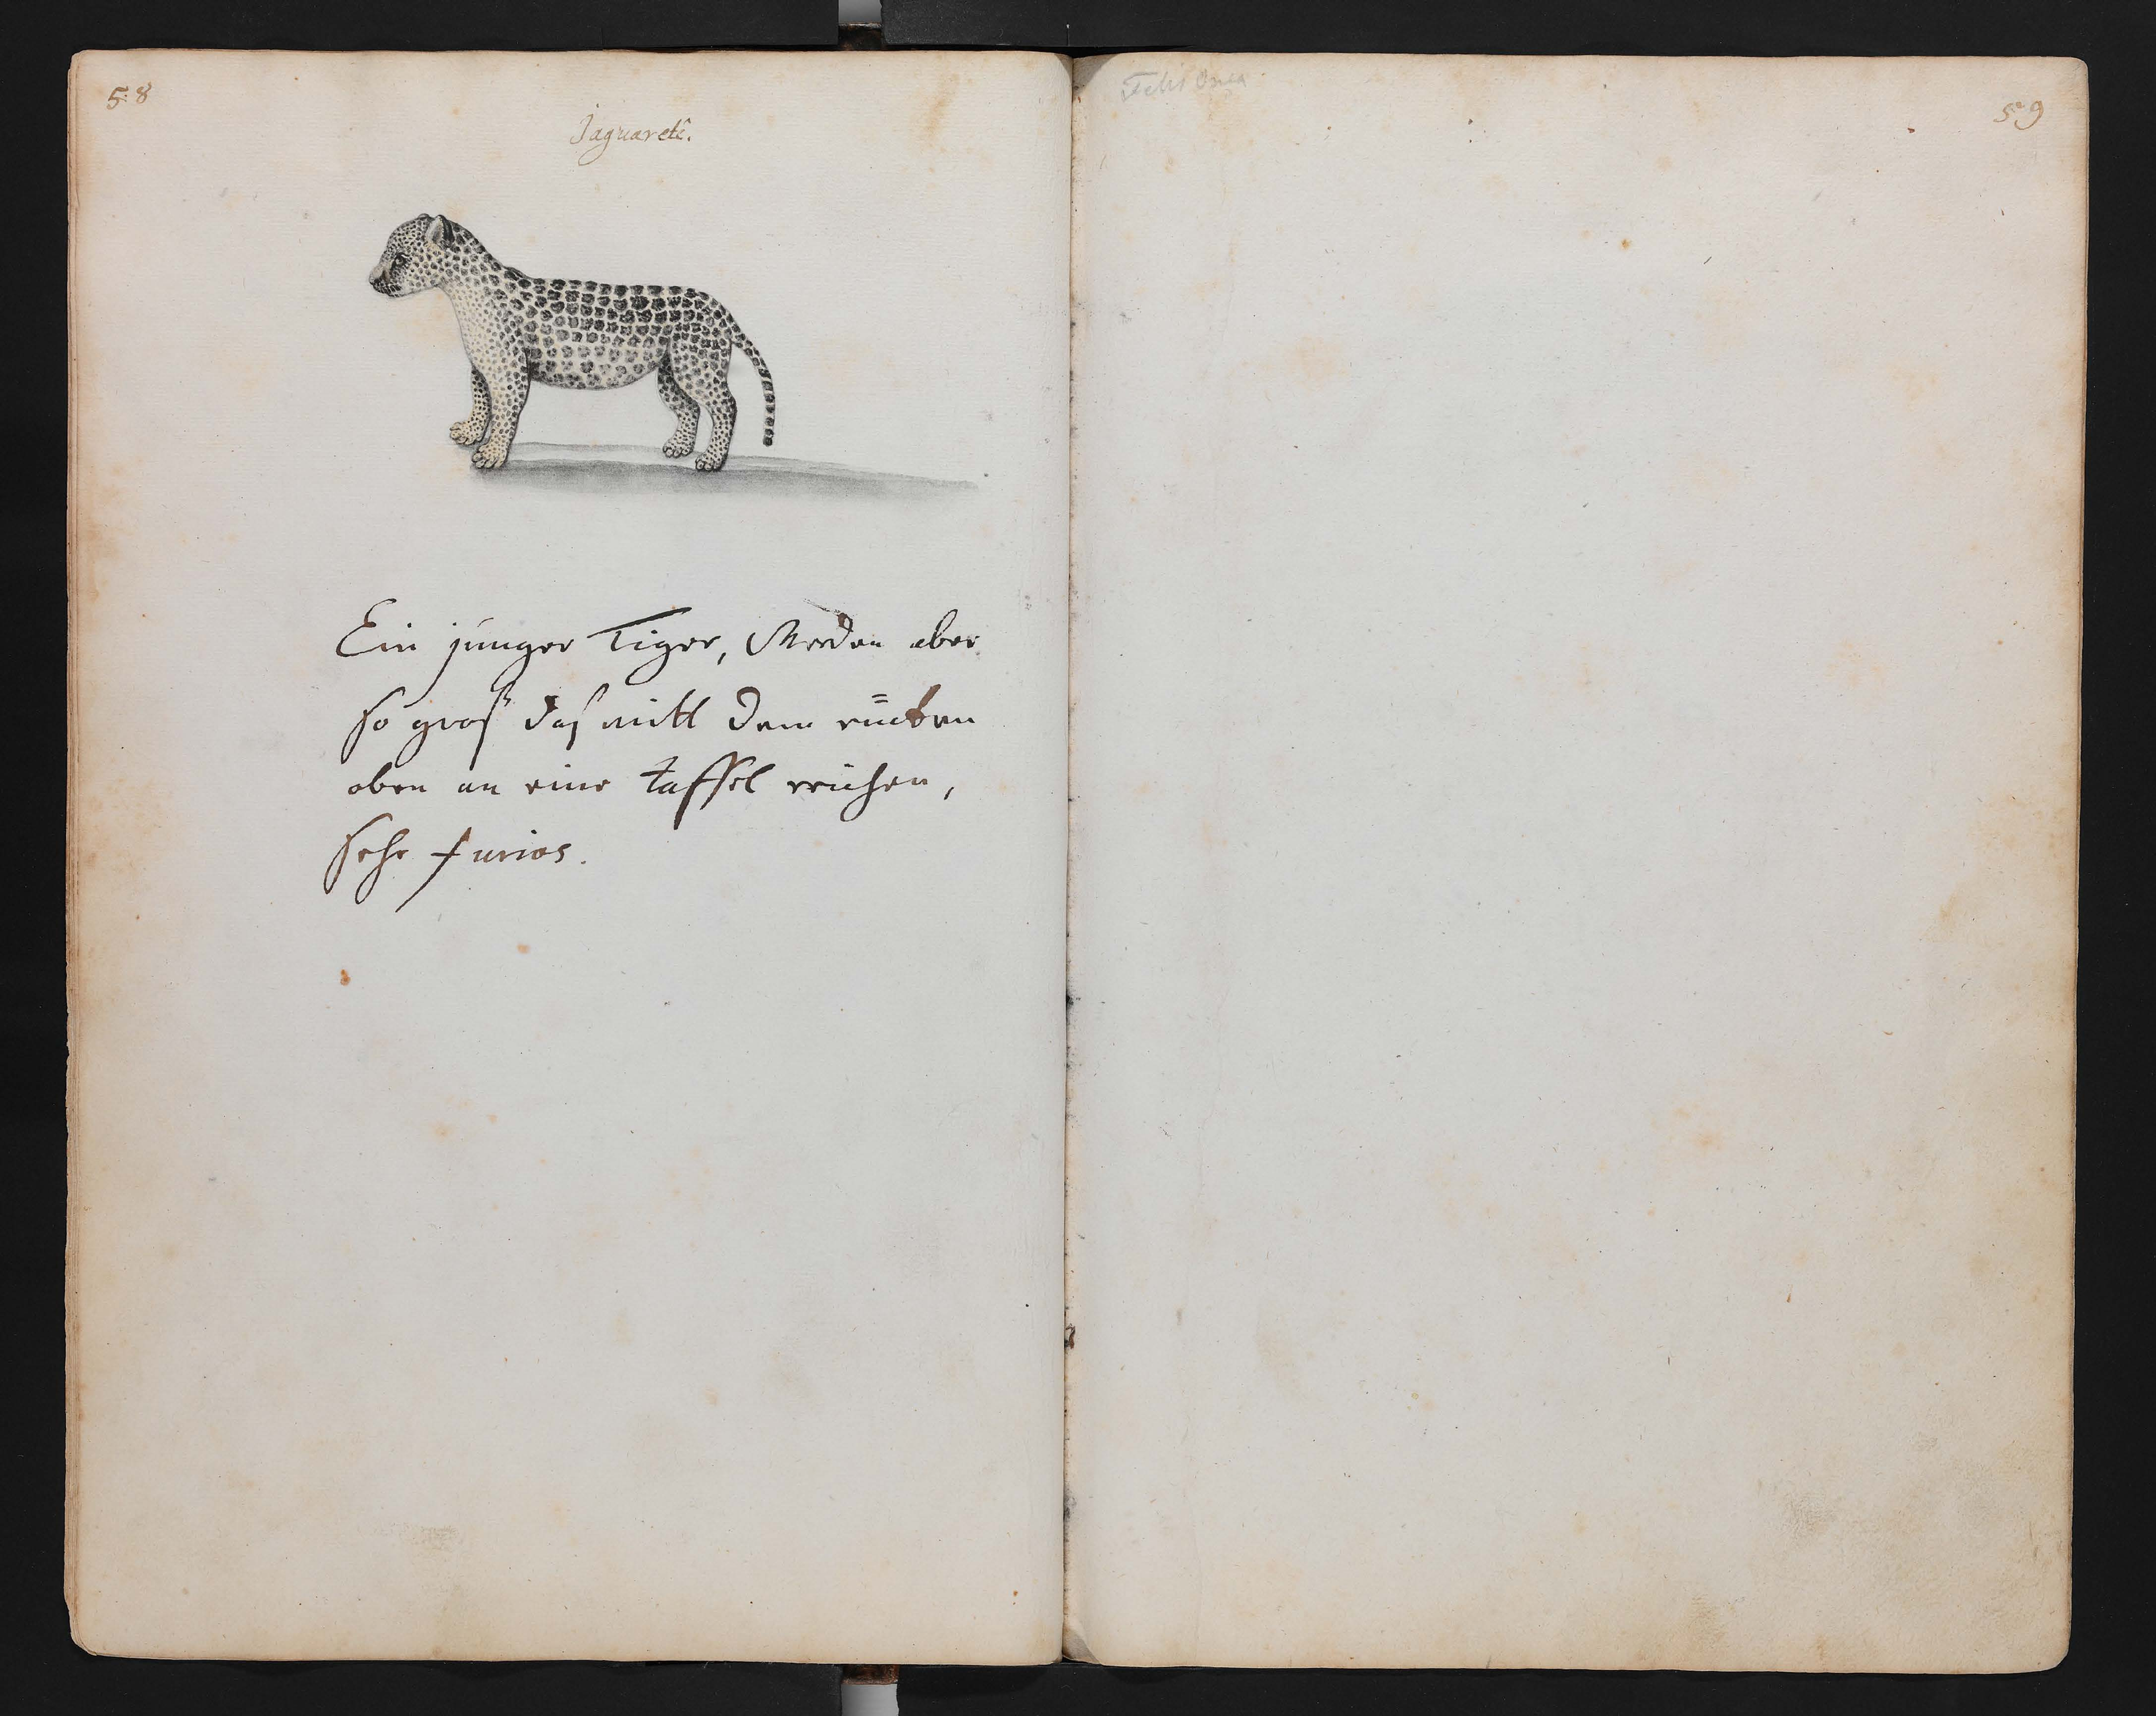 58
Jaguaretê.
Ein junger Tiger, Werden aber
so groß das mitt dem rücken
oben an eine taffel reichen,
sehr furios.
Felis Onca
59